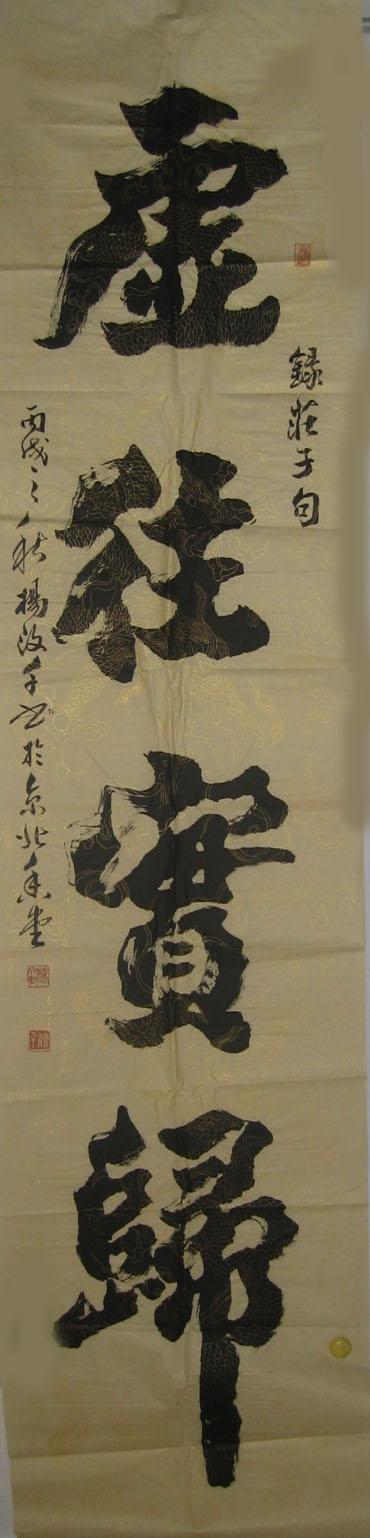 錄莊子句
虛往實歸
丙戌之秋楊汝千书於京北